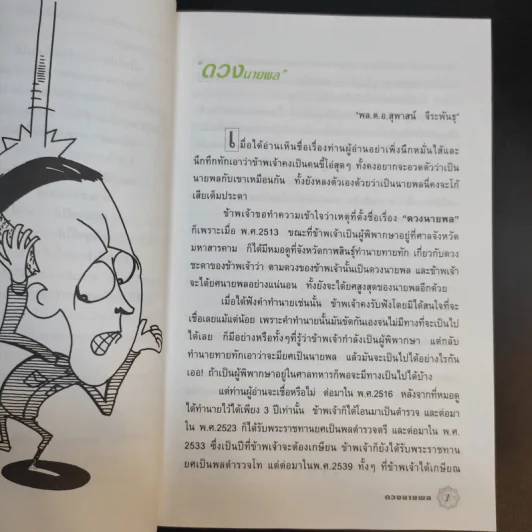 "ดวงนายพล"
"พล.ต.อ.สุพาสน์ จีระพันธุ"
เมื่อได้อ่านเห็นชื่อเรื่องท่านผู้อ่านอย่าเพิ่งนึกหมั่นไส้และ
นึกทึกทักเอาว่าข้าพเจ้าคงเป็นคนขี้โอ่สุดๆ ทั้งคงอยากจะอวดตัวว่าเป็น
นายพลกับเขาเหมือนกัน ทั้งยังหลงตัวเองด้วยว่าเป็นนายพลนี่คงจะโก้
เสียเต็มประดา
ข้าพเจ้าขอทำความเข้าใจว่าเหตุที่ตั้งชื่อเรื่อง "ดวงนายพล"
ก็เพราะเมื่อ พ.ศ.2513 ขณะที่ข้าพเจ้าเป็นผู้พิพากษาอยู่ที่ศาลจังหวัด
มหาสารคาม ก็ได้มีหมอดูที่จังหวัดกาฬสินธุ์ทำนายทายทัก เกี่ยวกับดวง
ชะตาของข้าพเจ้าว่า ตามดวงของข้าพเจ้านั้นเป็นดวงนายพล และข้าพเจ้า
จะได้ยศนายพลอย่างแน่นอน ทั้งยังจะได้ยศสูงสุดของนายพลอีกด้วย
เมื่อได้ฟังคำทำนายเช่นนั้น ข้าพเจ้าคงรับฟังโดยมิได้สนใจที่จะ
เชื่อเลยแม้แต่น้อย เพราะคำทำนายนั้นมันขัดกันเองจนไม่มีทางที่จะเป็นไป
ได้เลย ก็มีอย่างหรือทั้งๆที่รู้ว่าข้าพเจ้ากำลังเป็นผู้พิพากษา แต่กลับ
ทำนายทายทักเอาว่าจะมียศเป็นนายพล แล้วมันจะเป็นไปได้อย่างไรกัน
เออ! ถ้าเป็นผู้พิพากษาอยู่ในศาลทหารก็พอจะมีทางเป็นไปได้บ้าง
แต่ท่านผู้อ่านจะเชื่อหรือไม่ ต่อมาใน พ.ศ.2516 หลังจากที่หมอดู
ได้ทำนายไว้ได้เพียง 3 ปีเท่านั้น ข้าพเจ้าก็ได้โอนมาเป็นตำรวจ และต่อมา
ใน พ.ศ.2523 ก็ได้รับพระราชทานยศเป็นพลตำรวจตรี และต่อมาใน พ.ศ.
2533 ซึ่งเป็นปีที่ข้าพเจ้าจะต้องเกษียน ข้าพเจ้าก็ยังได้รับพระราชทาน
ยศเป็นพลตำรวจโท แต่ต่อมาในพ.ศ.2539 ทั้งๆ ที่ข้าพเจ้าได้เกษียณ
ดวงนายพล 1